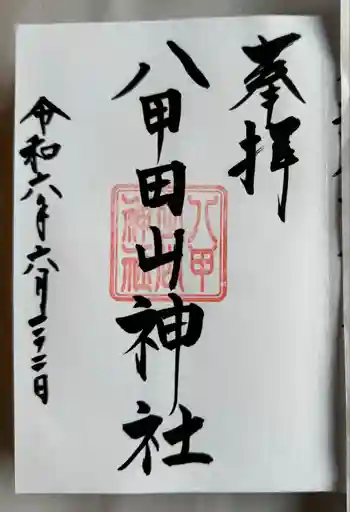 奉拝
八甲田山神社
令和六年六月二十二日
八甲
神社